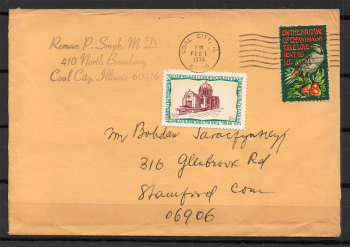 Roman P. Smyk, M. D.
410 North Broadway
Coal City, Illinois 60416
COAL CITY, IL
PM
FEB 1
ON THE FIRST DAY
OF CHRISTMAS MY
TRUE LOVE
SENT TO
ME
Mr Bohdan
316 Glenbrook Rd
Stamford Conn
06906